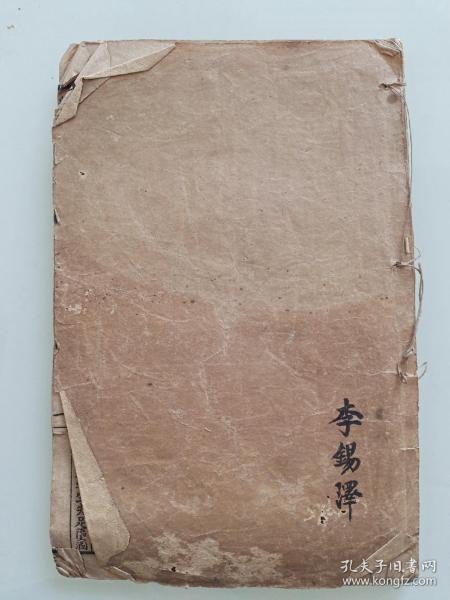 李錫澤
孔夫子旧书网
www.kongfz.com